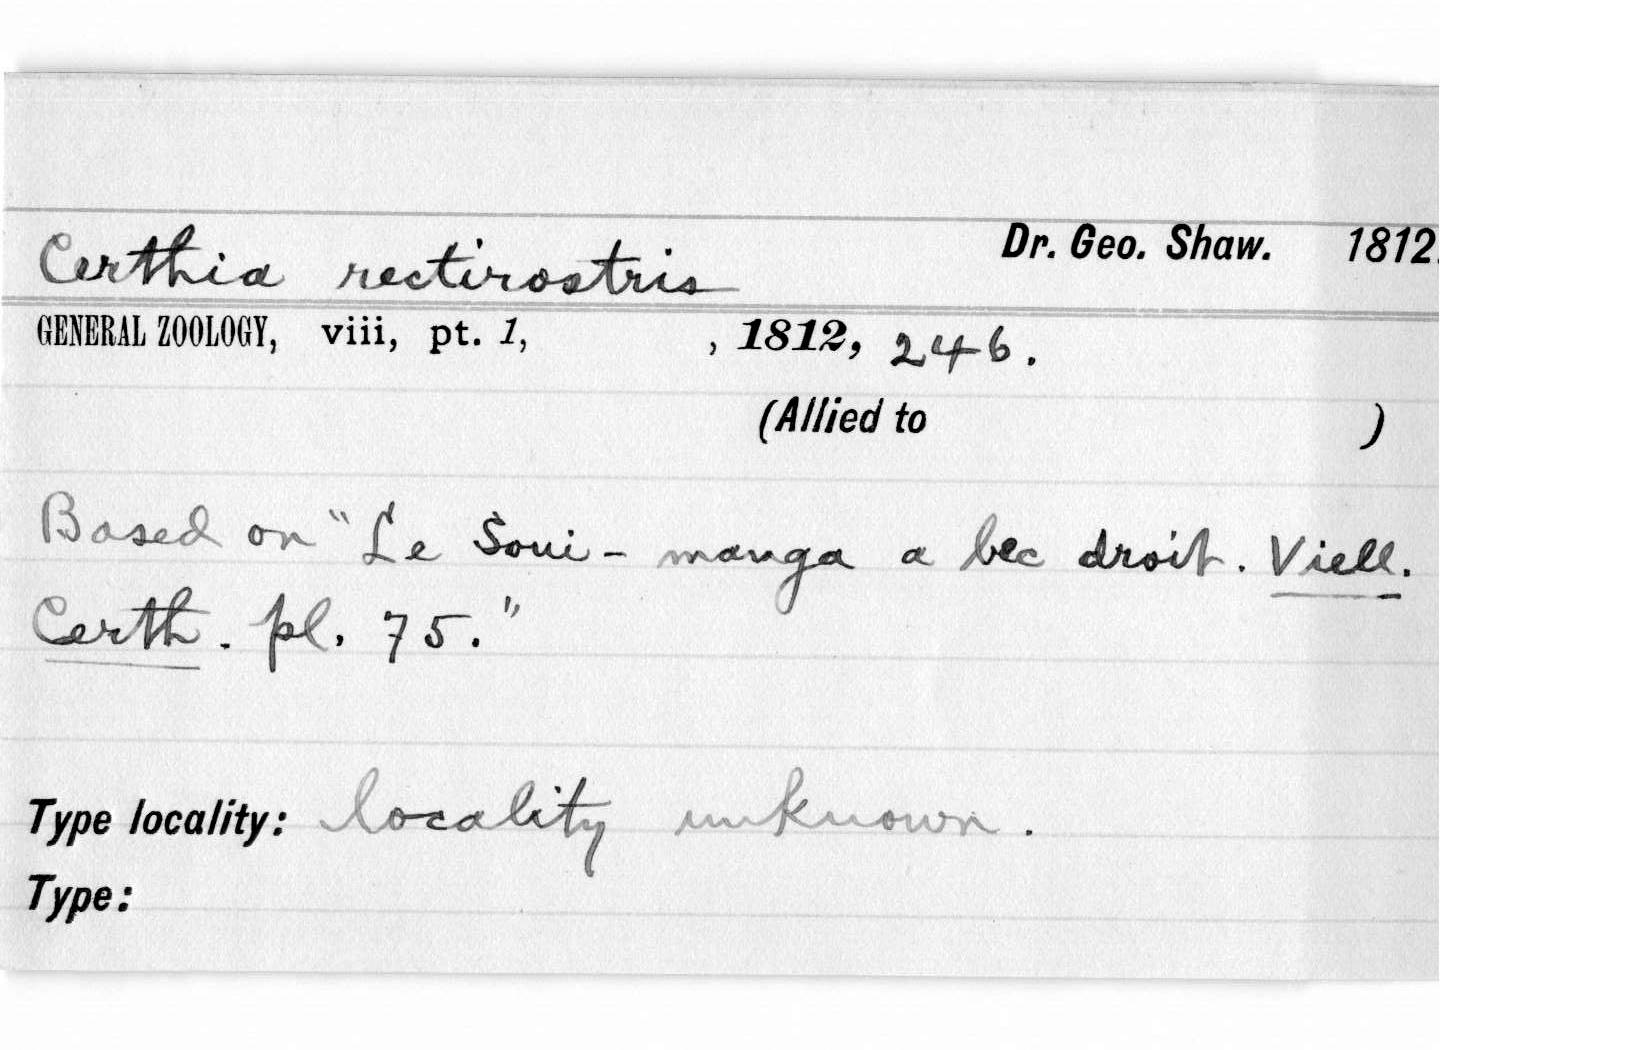 Certhia rectirostris Dr. Geo. Shaw. 1812.
GENERAL ZOOLOGY, viii, pt. 1, , 1812, 246.
(Allied to )
Based on "Le Soui-manga a bec droit. Viell.
Certh. pl. 75."
Type locality: locality unknown.
Type: